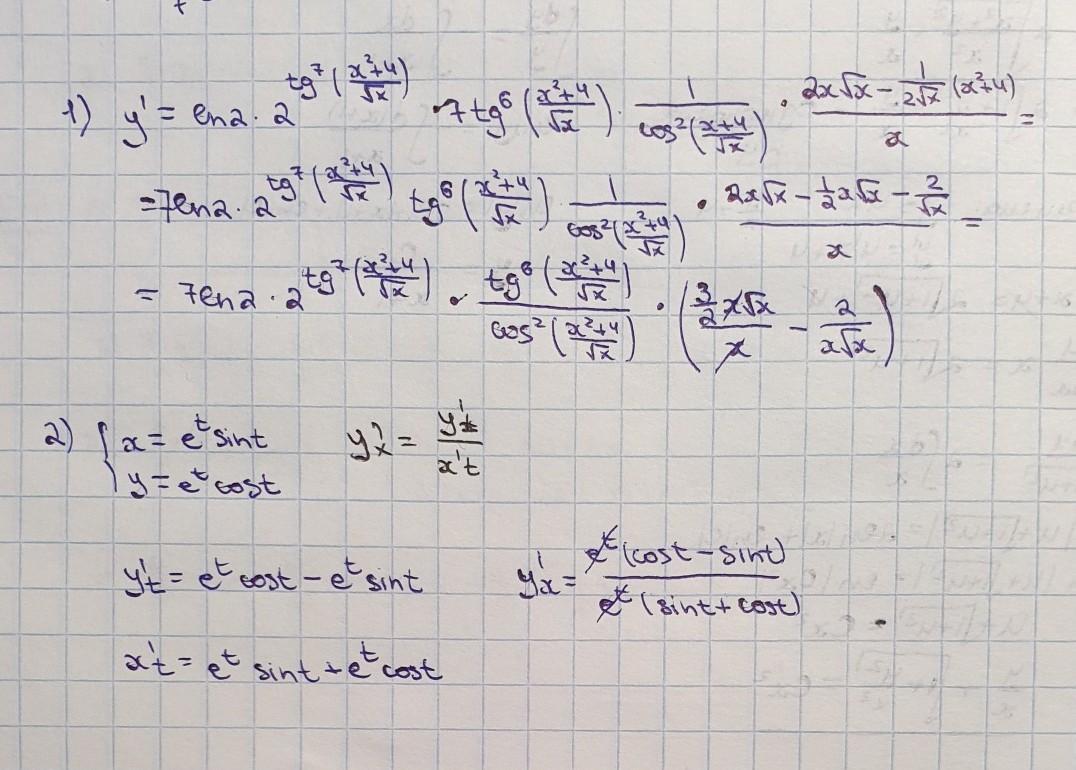 1) y' = ln2 · 2^{tg^7 ((x²+4)/√x)} · 7 tg^6 ((x²+4)/√x) · 1/cos²((x+4)/√x) · (2x√x − 1/(2√x) (x²+4))/x =
= 7ln2 · 2^{tg^7 ((x²+4)/√x)} tg^6 ((x²+4)/√x) · 1/cos²((x²+4)/√x) · (2x√x − 1/2 x√x − 2/√x)/x =
= 7ln2 · 2^{tg^7 ((x²+4)/√x)} · tg^6 ((x²+4)/√x)/cos² ((x²+4)/√x) · ((3/2 x√x)/x − 2/(x√x))
2) { x = e^t sint   y'x = y't/x't
y = e^t cost
y't = e^t cost − e^t sint   y'x = e^t (cost − sint)/e^t (sint + cost)
x't = e^t sint + e^t cost